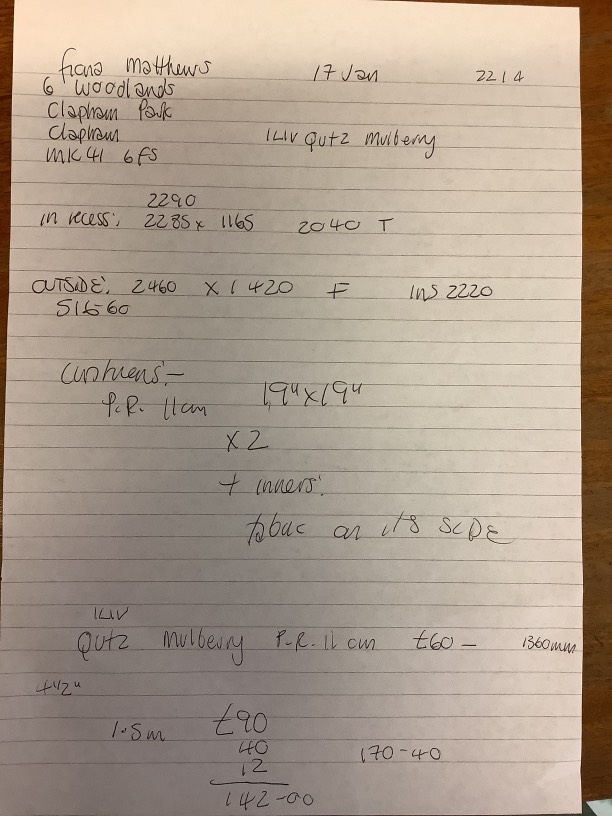 fiona matthews 17 Jan 2214
6 woodlands
Clapham Park
Clapham ILIV Qutz mulberry
MK41 6FS
2290
in recess: 2285 x 1165 2040 T
OUTSIDE: 2460 x 1420 F INS 2220
Cushuens:-
P.R. 11cm 19" x 19"
x 2
+ inners:
fabric on its SIDE
ILIV
Qutz mulberry P.R. 11 cm £60 - 1360mm
4 1/2"
1.5m £90
40 170-40
12
142-00